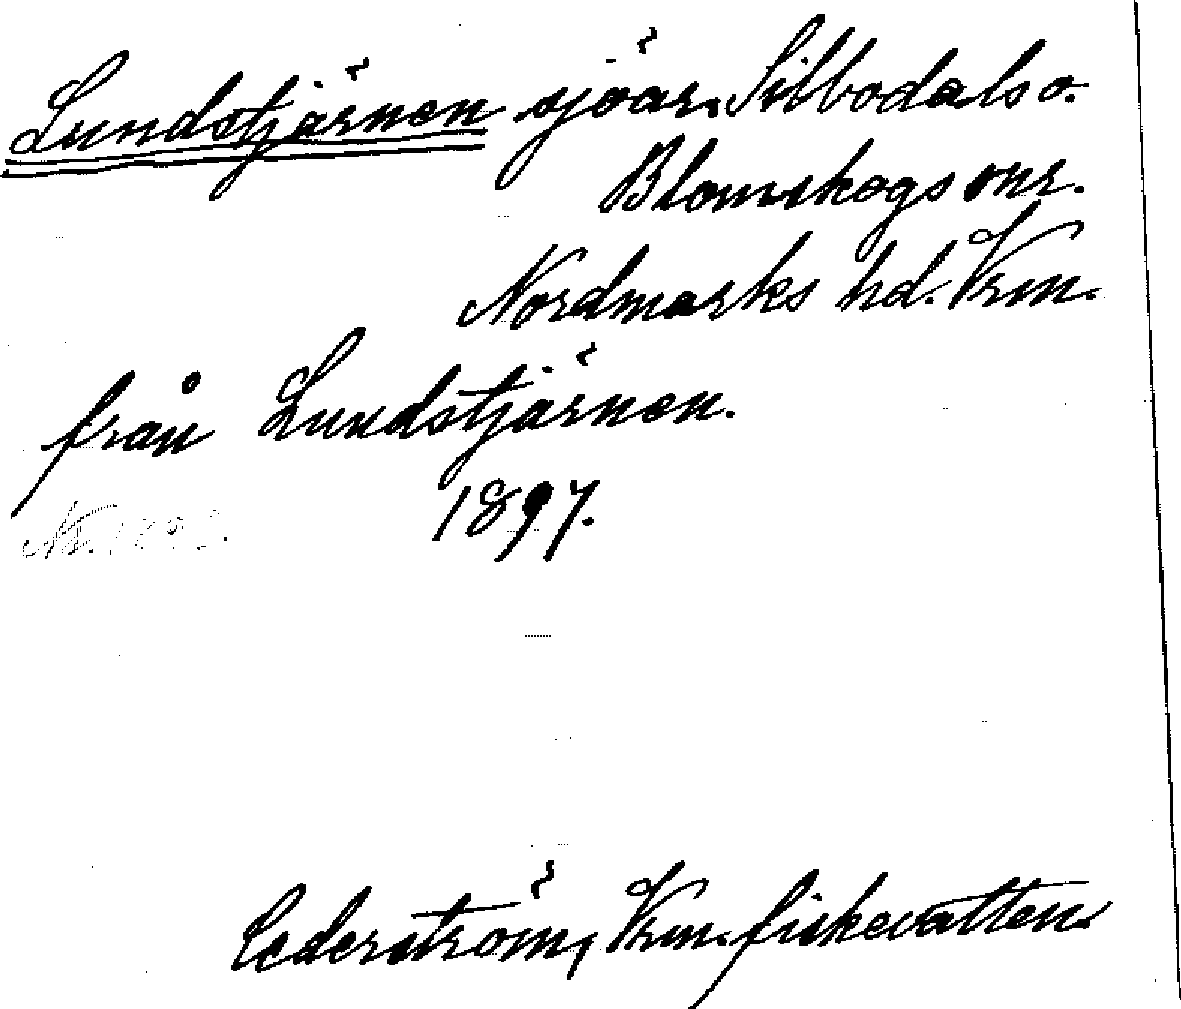 Lundstjärnen sjöar, Silbodals o.
Blomskogs snr.
Nordmarks hd. Vrm.
från Lundstjärnen.
1897.
Cederström, Vrm. fiskevatten.